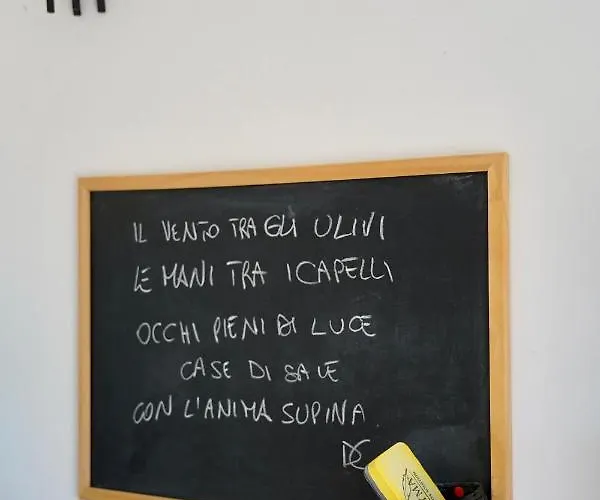 IL VENTO TRA GLI ULIVI
LE MANI TRA I CAPELLI
OCCHI PIENI DI LUCE
CASE DI SALE
CON L'ANIMA SUPINA
DC